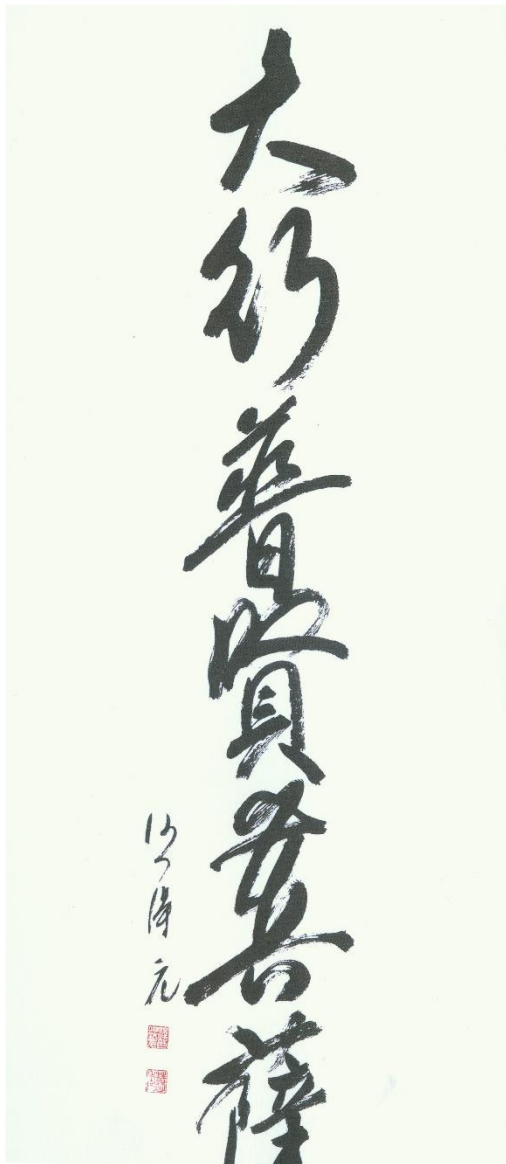 大行普賢菩薩